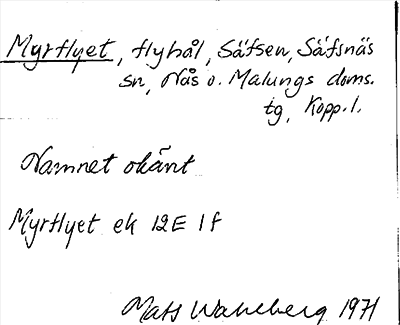 Myrflyet, flyhål, Säfsen, Säfsnäs
sn, Nås o. Malungs doms.
tg, Kopp. l.
Namnet okänt
Myrflyet ek 12E 1f
Mats Wahlberg 1971